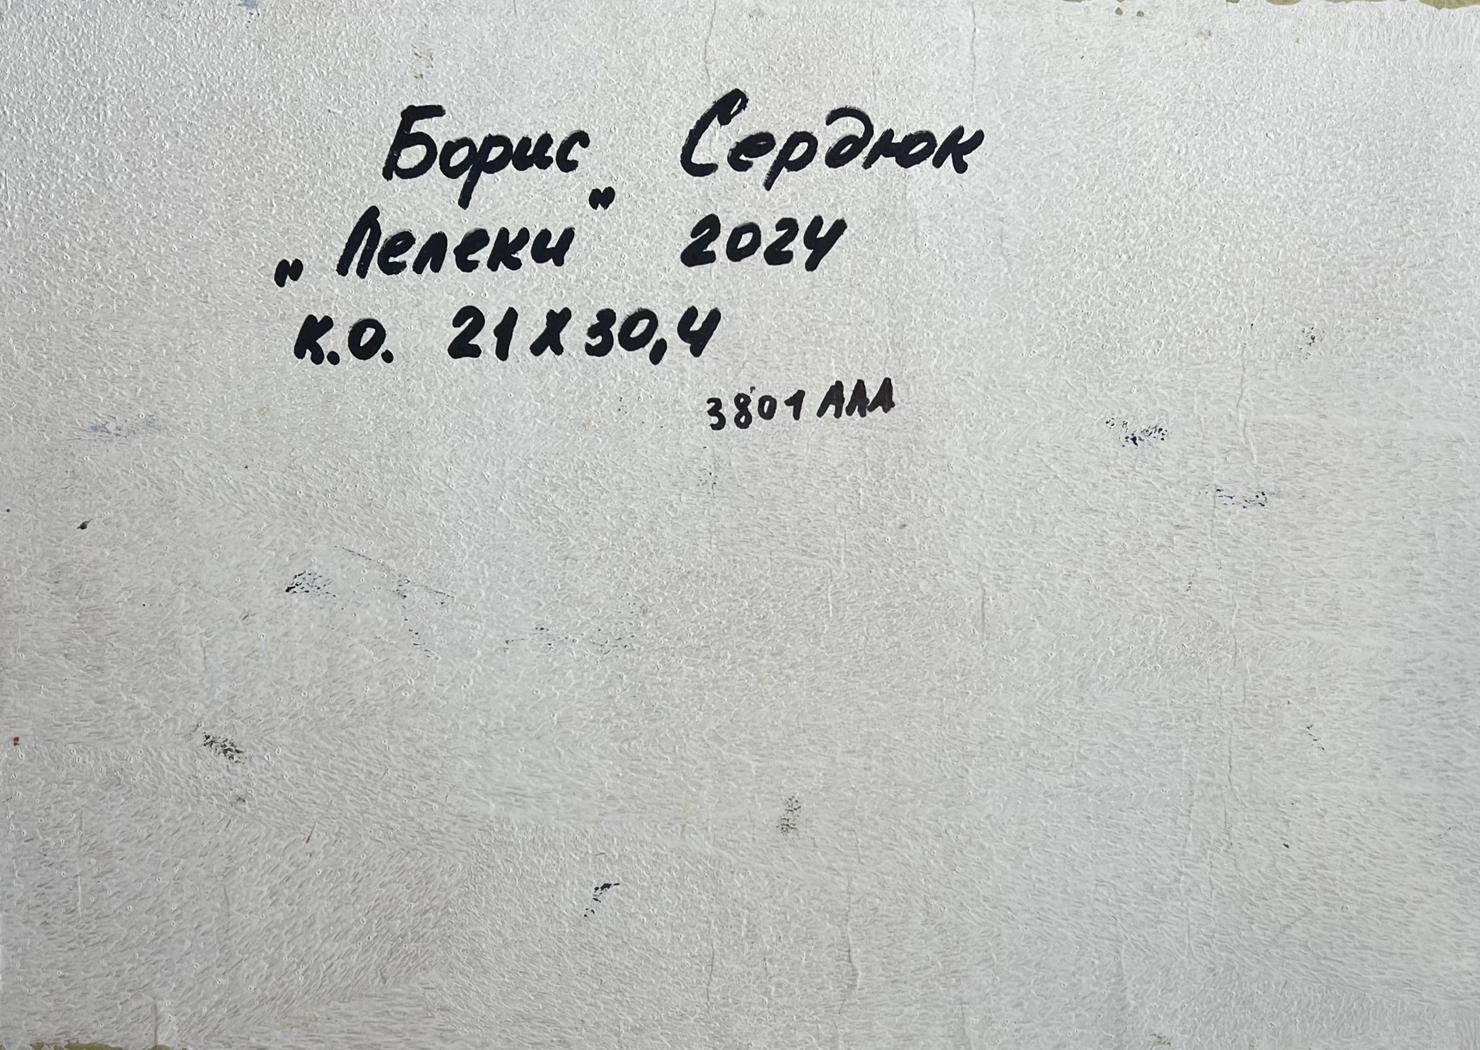 Борис Сердюк
„Лелеки" 2024
К.О. 21х30,4
3801 АЛА